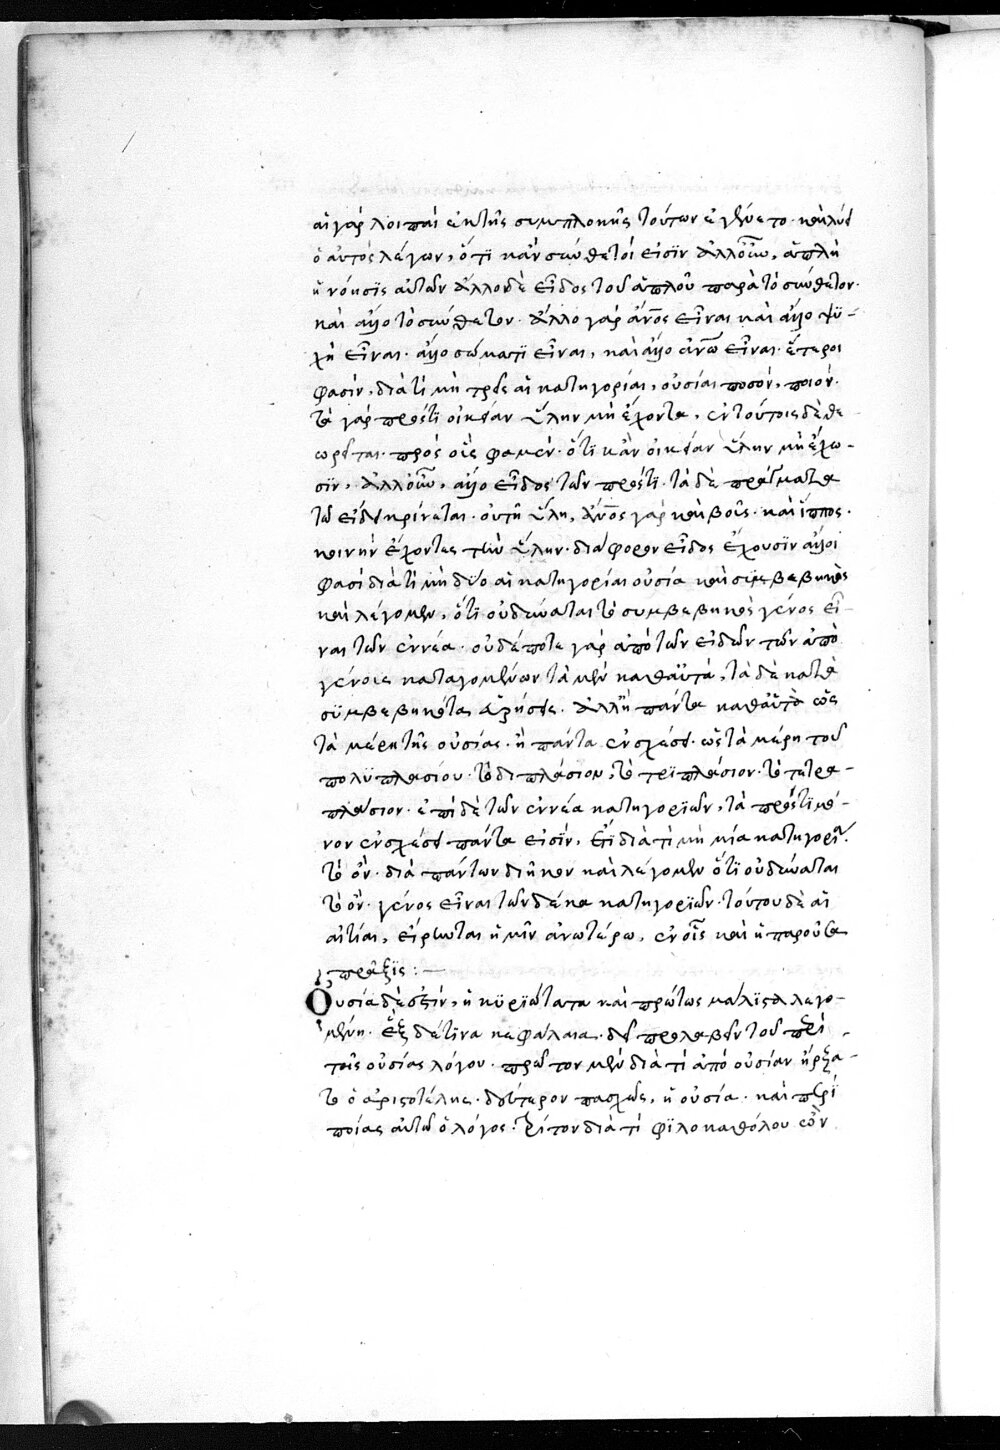 αἱ γὰρ λοιπαὶ ἐκ τῆς συμπλοκῆς τούτων ἐγένετο· καὶ λύει
ὁ αὐτὸς λέγων, ὅτι κἂν σύνθετοί εἰσϊν ἀλλοὖν, ἁπλῆ
ἡ νόησϊς αὐτῶν ἄλλο δὲ εἶδος τοῦ ἁπλοῦ παρὰ τὸ σύνθετον·
καὶ ἄλλο τὸ σύνθετον· ἄλλο γὰρ ἄνος εἶναι καὶ ἄλλο ψϋ-
χῆ εἶναι· ἄλλο σώματϊ εἶναι, καὶ ἄλλο ἀνω εἶναι· ἕτεροι
φασὶν, διατί μὴ τρεῖς αἱ κατηγορίαι, οὐσία ποσὸν, ποιόν·
τὰ γὰρ πρόστϊ οἰκείαν ὕλην μὴ ἔχοντα, ἐν τούτοις δὲ θε
ωρεῖται· πρὸς οἷς φαμὲν· ὅτϊ κἂν οἰκείαν ὕλην μὴ ἔχω-
σϊν, ἀλλοὖν, ἄλλο εἶδος τῶν πρόστϊ· τὰ δὲ πράγματα
τῶ εἴδει κρίνεται· οὐ τῆ ὕλη, ἄνος γὰρ καὶ βοῦς· καὶ ἵππος·
κοινὴν ἔχοντες τὴν ὕλην· διάφορον εἶδος ἔχουσϊν ἄλλοι
φασὶ διατί μὴ δύο αἱ κατηγορίαι οὐσία καὶ συμβεβηκὸς
καὶ λέγομεν, ὅτϊ οὐ δύναται τὸ συμβεβηκὸς γένος εἶ-
ναι τῶν ἐννέα· οὐδέποτε γὰρ ἀπὸ τῶν εἰδῶν τῶν ἀπὸ
γένοις καταγομένων τὰ μὲν καθαϋτὰ, τὰ δὲ κατὰ
σϋμβεβηκότα εὑρήσεις· ἀλλὴ πάντα καθαϋτὰ ὡς
τὰ μέρη τῆς οὐσίας· ἢ πάντα ἐν σχέσει· ὡς τὰ μέρη τοῦ
πολϋπλασίου· τὸ διπλάσιον, τὸ τρϊπλάσιον· τὸ τετρα-
πλάσιον· ἐπὶ δὲ τῶν ἐννέα κατηγορϊῶν, τὰ πρόστϊ μό-
νον ἐν σχέσει πάντα εἰσϊν, ἔτϊ διὰ τί μὴ μία κατηγορία·
τὸ ὂν· διὰ πάντων διῆκον καὶ λέγομεν ὅτϊ οὐ δύναται
τὸ ὂν· γένος εἶναι τῶν δέκα κατηγορϊῶν· τούτου δὲ αἱ
αἰτίαι, εἴρηνται ἡμῖν ἀνωτέρω, ἐν οἷς καὶ ἡ παροῦσα
πρᾶξϊς :—
Οὐσία δέ ἐστϊν, ἡ κϋρϊώτατα καὶ πρώτως μάλϊστα λεγο-
μένη· ἓξ δέ τϊνα κεφάλαια· δεῖ προλαβεῖν τοῦ περὶ
τοῖς οὐσίας λόγου· πρῶτον μὲν διὰ τί ἀπὸ οὐσίαν ἤρξα-
το ὁ ἀριστοτέλης· δεύτερον ποσαχῶς, ἡ οὐσία· καὶ περὶ
ποίας αὐτῶ ὁ λόγος· τρίτον διὰ τί φϊλο καθόλου ὢν